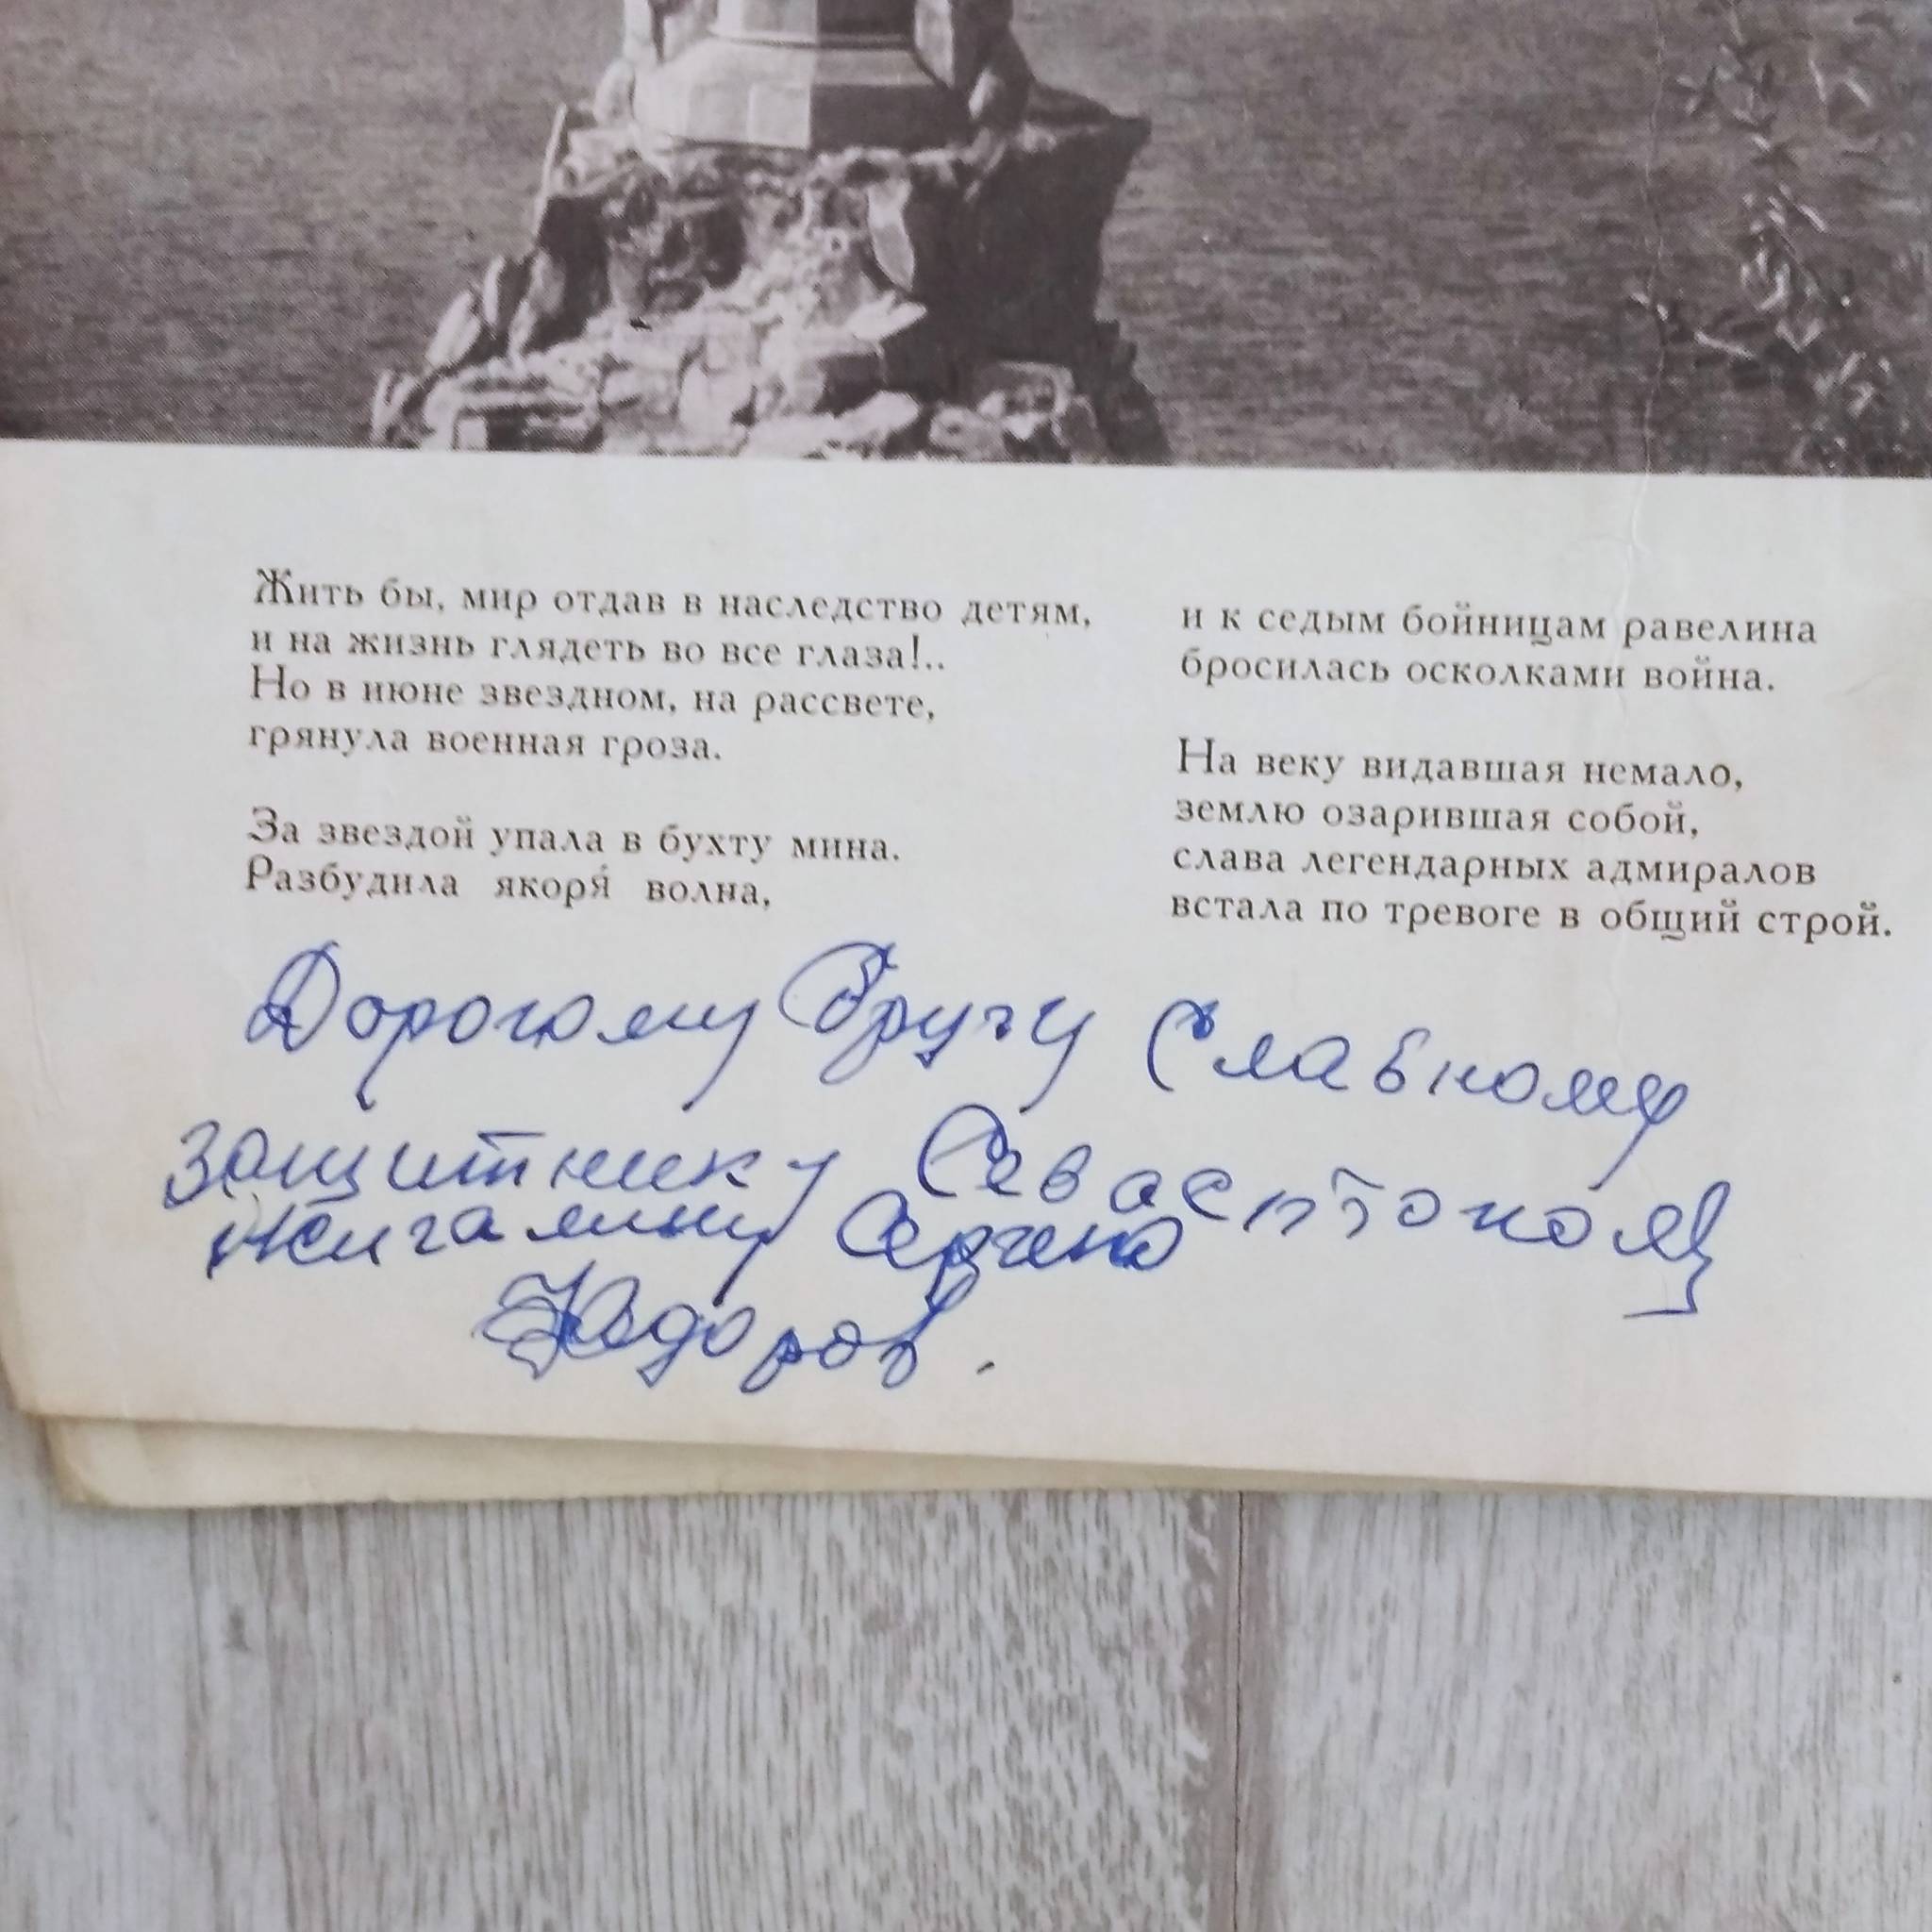 Жить бы, мир отдав в наследство детям,
и на жизнь глядеть во все глаза!..
Но в июне звездном, на рассвете,
грянула военная гроза.
За звездой упала в бухту мина.
Разбудила якоря́ волна,
и к седым бойницам равелина
бросилась осколками война.
На веку видавшая немало,
землю озарившая собой,
слава легендарных адмиралов
встала по тревоге в общий строй.
Дорогому Другу Славному
защитнику Севастополя
Жигалину Сергею